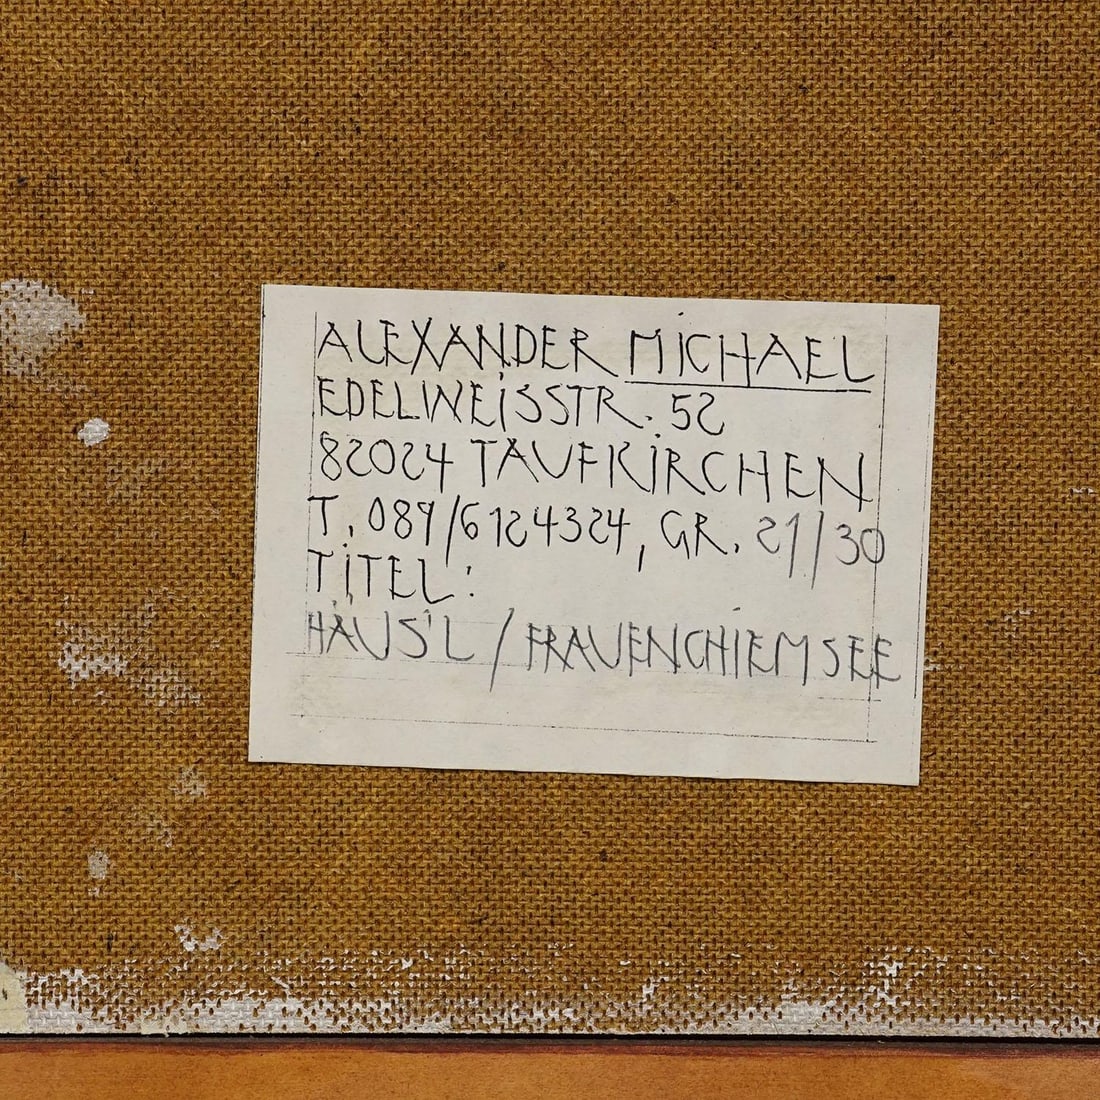 ALEXANDER MICHAEL
EDELWEISSSTR. 52
82024 TAUFKIRCHEN
T. 089/6124324, GR. 21/30
TITEL:
HÄUS'L / FRAUENCHIEMSEE